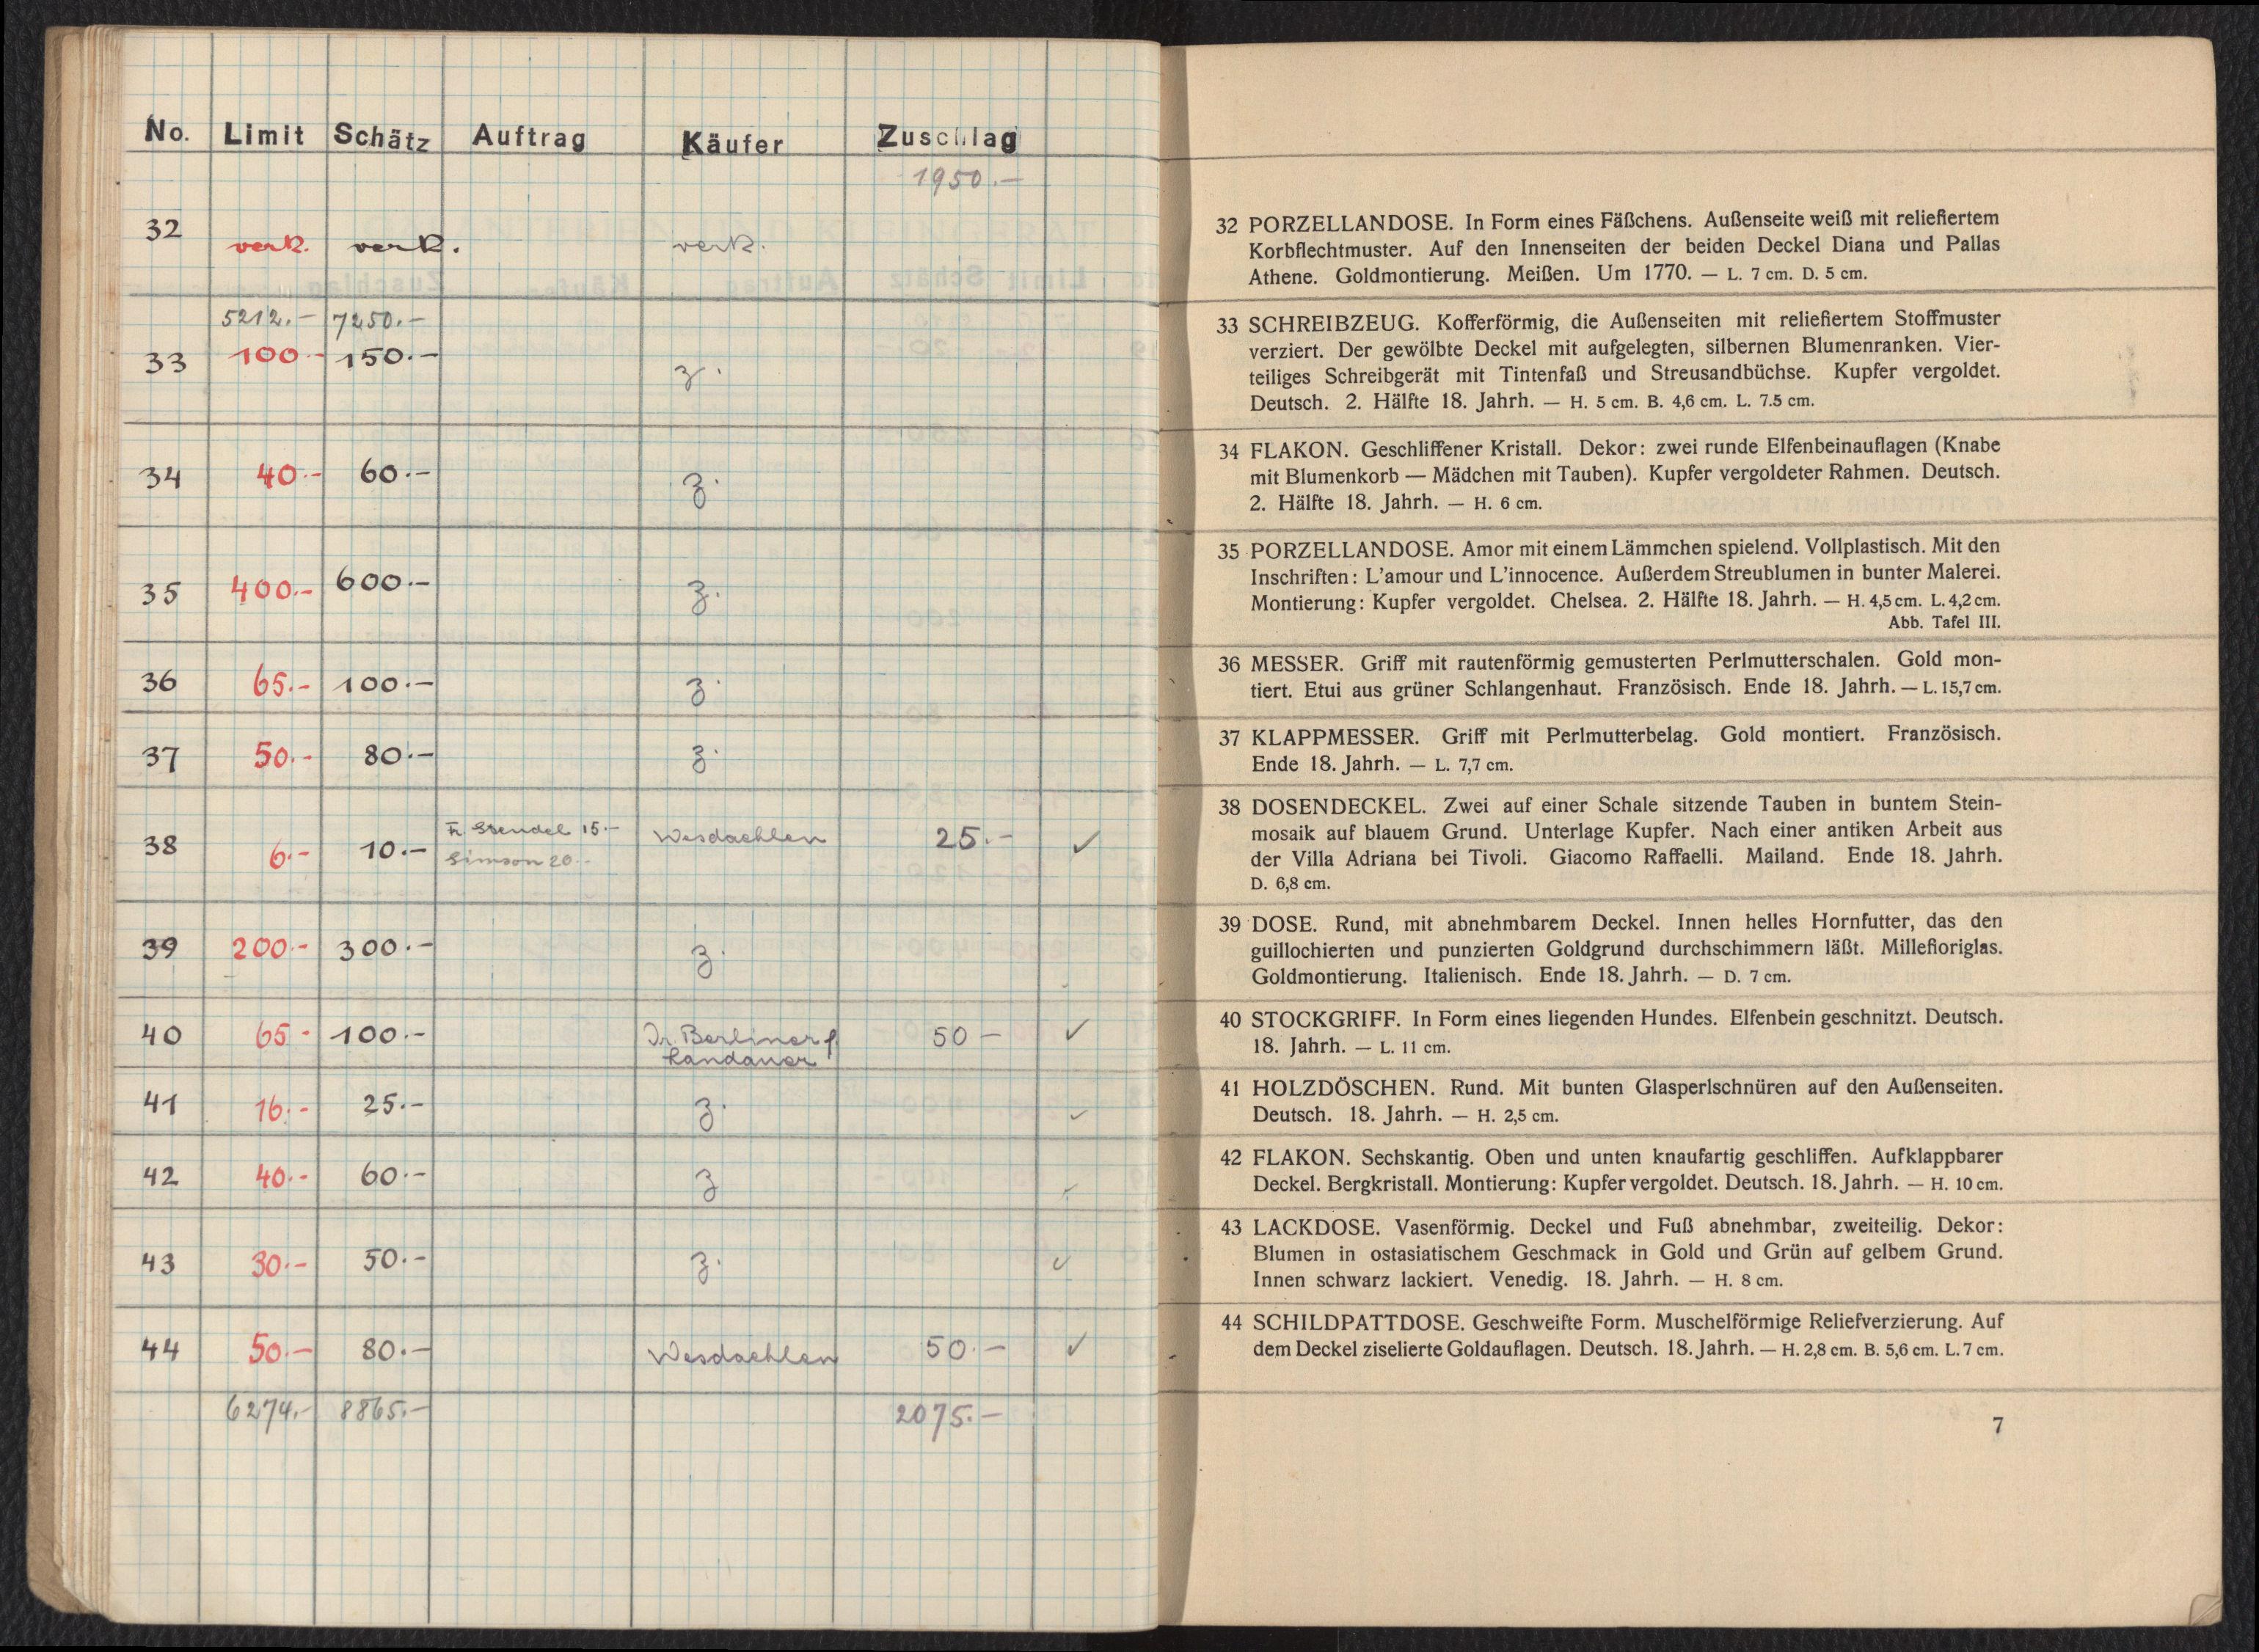 No. Limit Schätz Auftrag Käufer Zuschlag
1950.–
32 verk. verk. verk.
5212.– 7250.–
33 100.– 150.– z.
34 40.– 60.– z.
35 400.– 600.– z.
36 65.– 100.– z.
37 50.– 80.– z.
38 6.– 10.– 15.– Wesdaehlen 25.– ✓
Simson 20.–
39 200.– 300.– z.
40 65.– 100.– Dr. Berliner f. 50 – ✓
Landauer
41 16.– 25.– z. ✓
42 40.– 60.– z ✓
43 30.– 50.– z. ✓
44 50.– 80.– Wesdaehlen 50.– ✓
6274.– 8865.– 2075.–
32 PORZELLANDOSE. In Form eines Fäßchens. Außenseite weiß mit reliefiertem
Korbflechtmuster. Auf den Innenseiten der beiden Deckel Diana und Pallas
Athene. Goldmontierung. Meißen. Um 1770. — L. 7 cm. D. 5 cm.
33 SCHREIBZEUG. Kofferförmig, die Außenseiten mit reliefiertem Stoffmuster
verziert. Der gewölbte Deckel mit aufgelegten, silbernen Blumenranken. Vier-
teiliges Schreibgerät mit Tintenfaß und Streusandbüchse. Kupfer vergoldet.
Deutsch. 2. Hälfte 18. Jahrh. — H. 5 cm. B. 4,6 cm. L. 7.5 cm.
34 FLAKON. Geschliffener Kristall. Dekor: zwei runde Elfenbeinauflagen (Knabe
mit Blumenkorb — Mädchen mit Tauben). Kupfer vergoldeter Rahmen. Deutsch.
2. Hälfte 18. Jahrh. — H. 6 cm.
35 PORZELLANDOSE. Amor mit einem Lämmchen spielend. Vollplastisch. Mit den
Inschriften: L'amour und L'innocence. Außerdem Streublumen in bunter Malerei.
Montierung: Kupfer vergoldet. Chelsea. 2. Hälfte 18. Jahrh. — H. 4,5 cm. L. 4,2 cm.
Abb. Tafel III.
36 MESSER. Griff mit rautenförmig gemusterten Perlmutterschalen. Gold mon-
tiert. Etui aus grüner Schlangenhaut. Französisch. Ende 18. Jahrh. — L. 15,7 cm.
37 KLAPPMESSER. Griff mit Perlmutterbelag. Gold montiert. Französisch.
Ende 18. Jahrh. — L. 7,7 cm.
38 DOSENDECKEL. Zwei auf einer Schale sitzende Tauben in buntem Stein-
mosaik auf blauem Grund. Unterlage Kupfer. Nach einer antiken Arbeit aus
der Villa Adriana bei Tivoli. Giacomo Raffaelli. Mailand. Ende 18. Jahrh.
D. 6,8 cm.
39 DOSE. Rund, mit abnehmbarem Deckel. Innen helles Hornfutter, das den
guillochierten und punzierten Goldgrund durchschimmern läßt. Millefioriglas.
Goldmontierung. Italienisch. Ende 18. Jahrh. — D. 7 cm.
40 STOCKGRIFF. In Form eines liegenden Hundes. Elfenbein geschnitzt. Deutsch.
18. Jahrh. — L. 11 cm.
41 HOLZDÖSCHEN. Rund. Mit bunten Glasperlschnüren auf den Außenseiten.
Deutsch. 18. Jahrh. — H. 2,5 cm.
42 FLAKON. Sechskantig. Oben und unten knaufartig geschliffen. Aufklappbarer
Deckel. Bergkristall. Montierung: Kupfer vergoldet. Deutsch. 18. Jahrh. — H. 10 cm.
43 LACKDOSE. Vasenförmig. Deckel und Fuß abnehmbar, zweiteilig. Dekor:
Blumen in ostasiatischem Geschmack in Gold und Grün auf gelbem Grund.
Innen schwarz lackiert. Venedig. 18. Jahrh. — H. 8 cm.
44 SCHILDPATTDOSE. Geschweifte Form. Muschelförmige Reliefverzierung. Auf
dem Deckel ziselierte Goldauflagen. Deutsch. 18. Jahrh. — H. 2,8 cm. B. 5,6 cm. L. 7 cm.
7